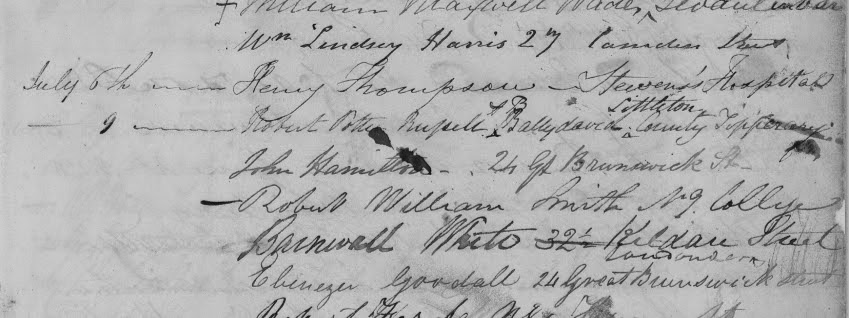 + William Maxwell Wade,
Wm Lindsey Harris 27 Camden Street
July 6th Henry Thompson Stevens's Hospital
Littleton
— 9 Robert Potter Russell Ballydavid County Tipperary
John Hamilton - 24 Gt Brunswick St -
Robert William Smith No 9. College
Barnwall White 32½ Kildare Street
Londonderry
Ebenezer Goodall 24 Great Brunswick Street